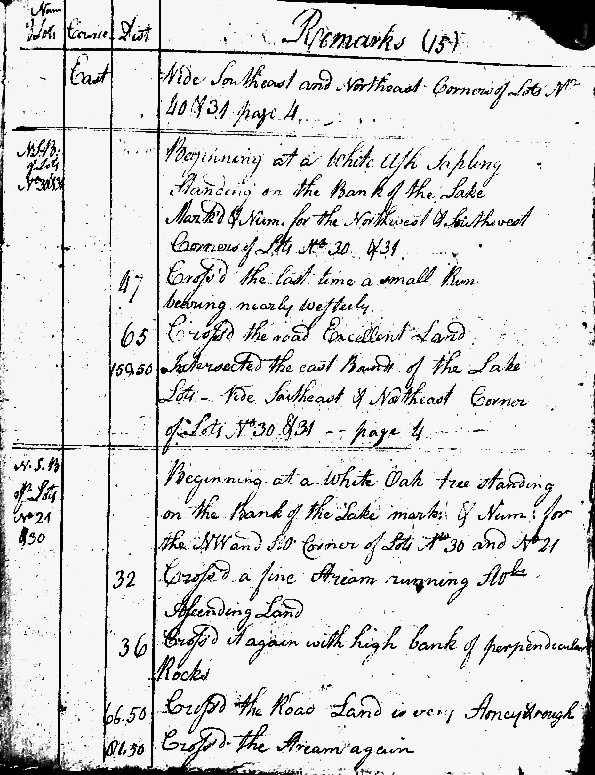 Num
of Lots Course Dist Remarks (15)
East Vide Southeast and Northeast Corners of Lots No
40 & 31 page 4
N. S. B. Beginning at a White Ash Sapling
of Lots Standing on the Bank of the Lake
Mark'd & Num. for the Northwest & Southwest
Corners of Lots No 30 & 31
47 Cross'd the last time a small Run
bearing nearly westerly
65 Cross'd the road Excellent Land
159.50 Intersected the east Bounds of the Lake
Lots - Vide Southeast & Northeast Corner
of Lots No 30 & 31 -- page 4
N. S. B Beginning at a White Oak tree standing
of Lots on the Bank of the Lake mark & Num: for
No 21 the NW and SW Corner of Lots No 30 and No 21
& 30
32 Cross'd a fine Stream running
Ascending Land
36 Cross'd it again with high bank of perpendicular
Rocks
66.50 Cross'd the Road Land is very Stoney & rough
81.50 Cross'd the Stream again